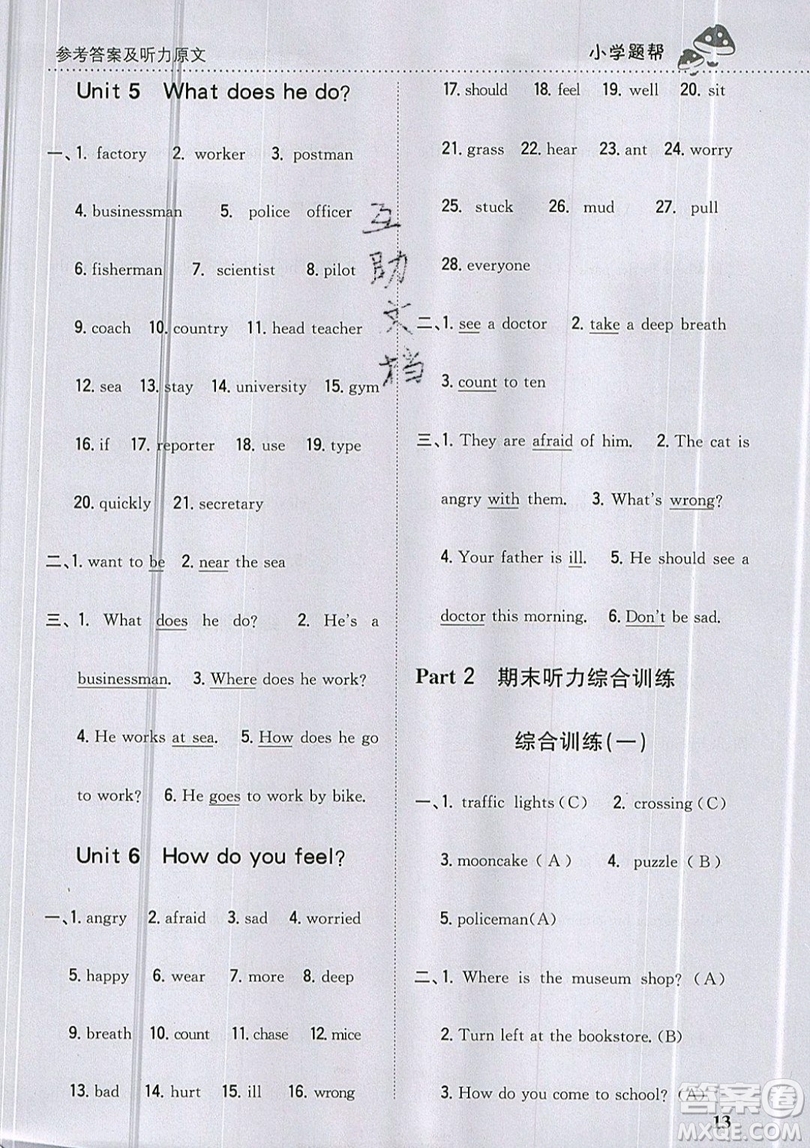 参考答案及听力原文
小学题帮
Unit 5 What does he do?
一、1. factory 2. worker 3. postman
4. businessman 5. police officer
6. fisherman 7. scientist 8. pilot
9. coach 10. country 11. head teacher
12. sea 13. stay 14. university 15. gym
16. if 17. reporter 18. use 19. type
20. quickly 21. secretary
二、1. want to be 2. near the sea
三、1. What does he do? 2. He's a
businessman. 3. Where does he work?
4. He works at sea. 5. How does he go
to work? 6. He goes to work by bike.
Unit 6 How do you feel?
一、1. angry 2. afraid 3. sad 4. worried
5. happy 6. wear 7. more 8. deep
9. breath 10. count 11. chase 12. mice
13. bad 14. hurt 15. ill 16. wrong
17. should 18. feel 19. well 20. sit
21. grass 22. hear 23. ant 24. worry
25. stuck 26. mud 27. pull
28. everyone
二、1. see a doctor 2. take a deep breath
3. count to ten
三、1. They are afraid of him. 2. The cat is
angry with them. 3. What's wrong?
4. Your father is ill. 5. He should see a
doctor this morning. 6. Don't be sad.
Part 2 期末听力综合训练
综合训练(一)
一、1. traffic lights(C) 2. crossing(C)
3. mooncake(A) 4. puzzle(B)
5. policeman(A)
二、1. Where is the museum shop?(A)
2. Turn left at the bookstore.(B)
3. How do you come to school?(A)
13
互助文档
答案圈
MXQE.COM